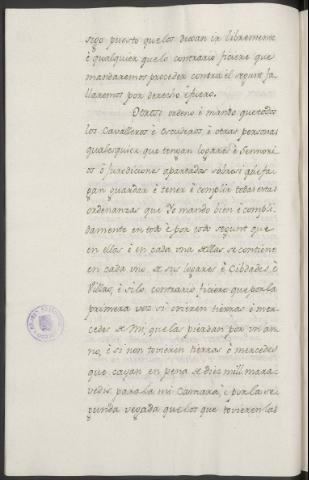 sego puesto que los dexan ir libremente
è qualquier que lo contrario ficiere que
mandaremos proceder contra él segunt fa-
llaremos por derecho è fuero.
Otrosi ordeno è mando que todos
los Cavalleros è Escuderos è otras personas
qualesquier que tengan logares è Sennorios
ò Juredicciones apartadas sobre si que fa-
gan guardar è tener è complir todas estas
ordenanzas que Yo mando bien è compli-
damente en todo è por todo segunt que
en ellas è en cada una dellas se contiene
en cada uno de sus logares è Cibdades è
Villas, è si lo contrario ficiere que por la
primera vez si ovieren tierras ò mer-
cedes de Mi, que las pierdan por un an-
no, è si non tovieren tierras ò mercedes
que cayan en pena de diez mill mara-
vedis para la mi Camara, è por la se-
gunda vegada que los que tovieren las